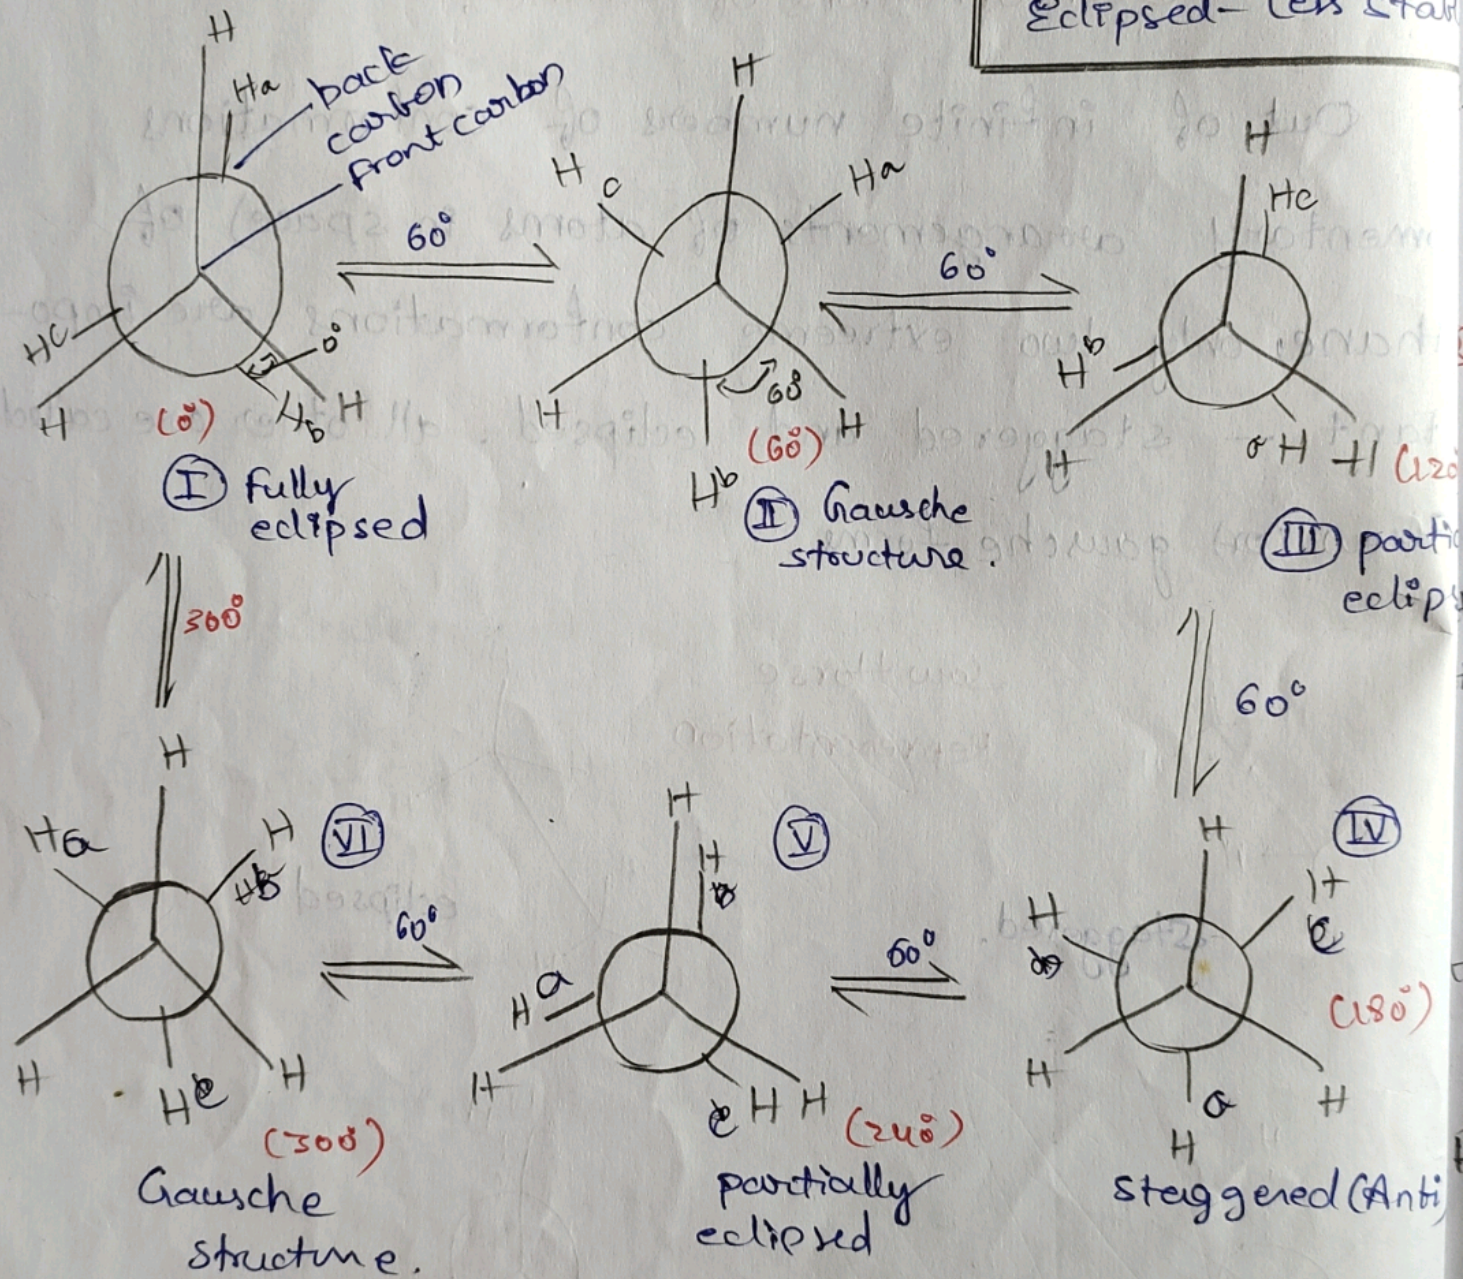 Eclipsed - Less Stabl
H
Ha
back
carbon
front carbon
Hc
H
0°
Hb
H
(0°)
I fully
eclipsed
60°
H
H c
Ha
H
60°
H
Hb
(60°)
II Gausche
structure.
60°
H
Hc
Hb
H
a H
H
(120
III partic
eclips
300°
60°
H
Ha
H
b
VI
H
Hc
H
(300°)
Gausche
structure.
60°
H
H
b
V
a
H
H
c H
H
(240°)
partially
eclipsed
60°
H
IV
H
c
H
b
(180°)
H
a
H
H
staggered (Anti)